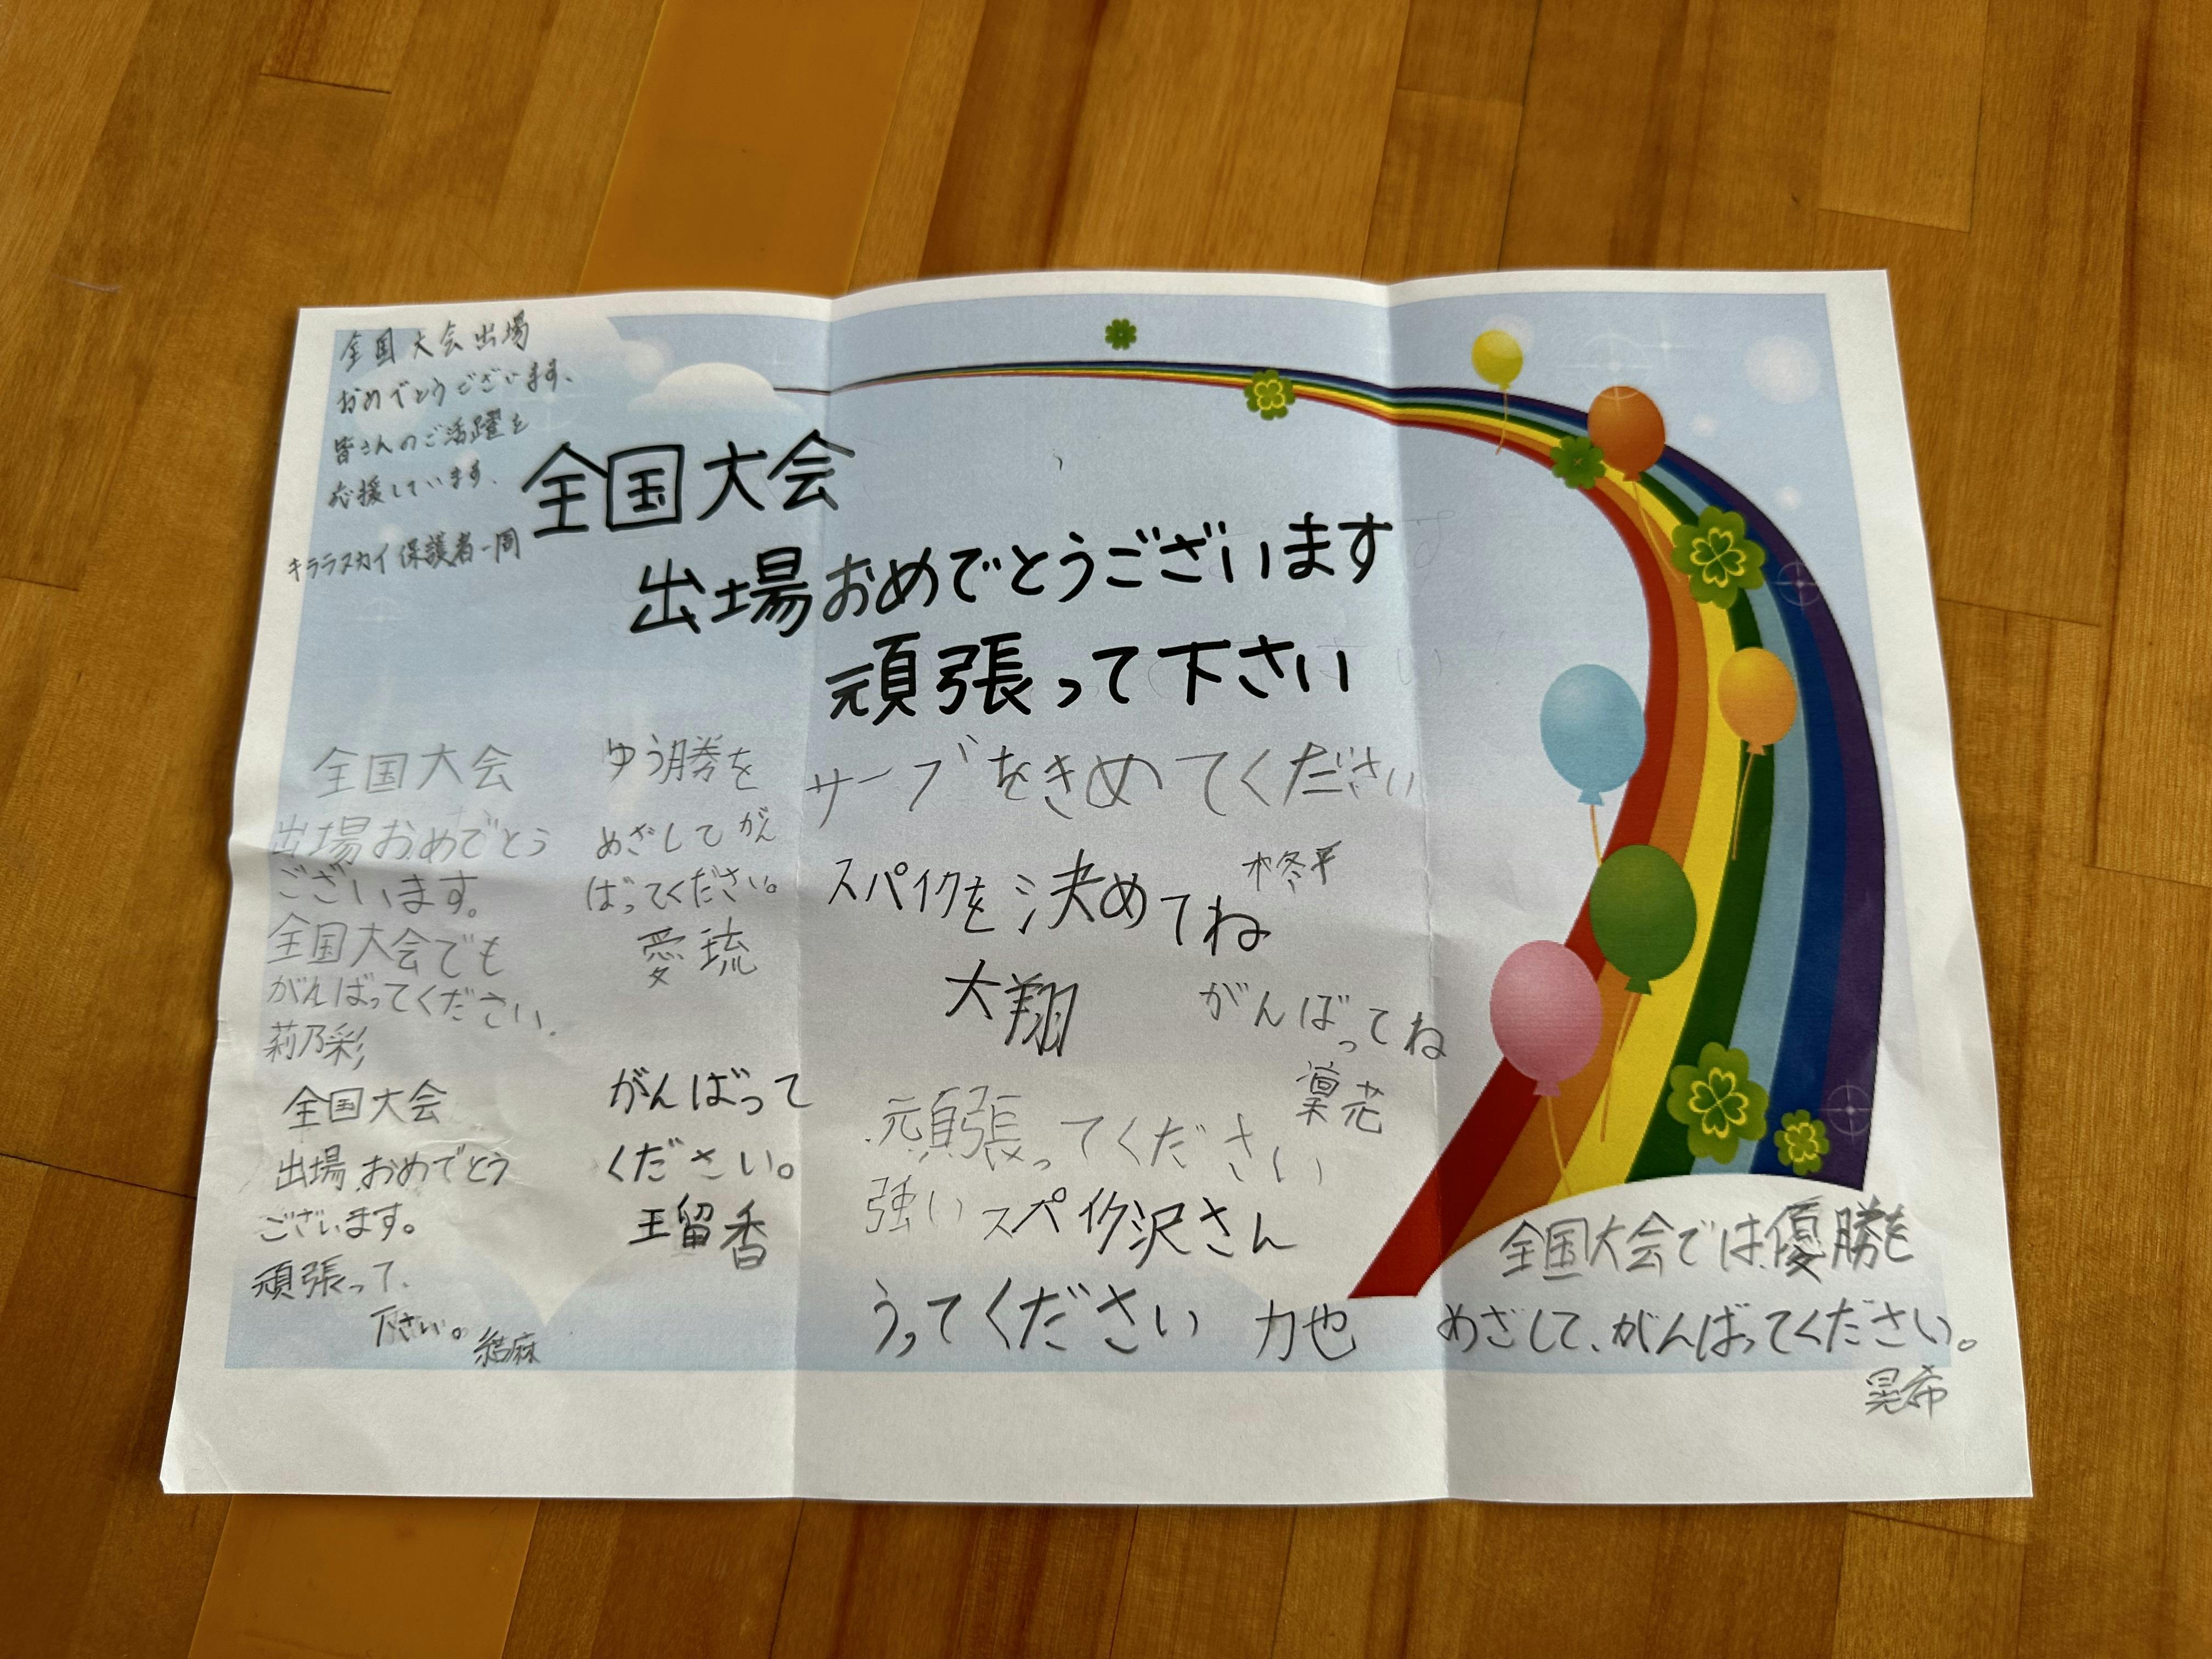 全国大会出場
おめでとうございます、
皆さんのご活躍を
応援しています、
キララスカイ保護者一同
全国大会
出場おめでとうございます
頑張って下さい
全国大会
出場おめでとう
ございます。
全国大会でも
がんばってください、
莉乃彩
ゆう勝を
めざしてがん
ばってください。
愛琉
サーブをきめてください
柊平
スパイクを決めてね
大翔
がんばってね
凜花
全国大会
出場おめでとう
ございます。
頑張って、
下さい。
結麻
がんばって
ください。
王留香
頑張ってください
強いスパイク沢さん
うってください 力也
全国大会では優勝を
めざして、がんばってください。
晃希